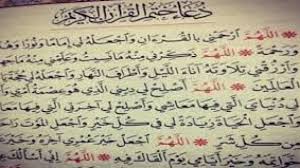 دُعَاءُ خَتْمِ الْقُرْآنِ الْكَرِيمِ
* اللَّهُمَّ ارْحَمْنِي بِالْقُرْءَانِ وَاجْعَلْهُ لِي إِمَامًا وَنُورًا
وَرَحْمَةً * اللَّهُمَّ ذَكِّرْنِي مِنْهُ مَانَسِيتُ وَعَلِّمْنِي مِنْهُ
وَارْزُقْنِي تِلَاوَتَهُ آنَاءَ اللَّيْلِ وَأَطْرَافَ النَّهَارِ وَاجْعَلْهُ لِي
* اللَّهُمَّ أَصْلِحْ لِي دِينِي الَّذِي هُوَ
دُنْيَايَ الَّتِي فِيهَا مَعَاشِي وَأَصْلِحْ لِي آخِرَتِي الَّتِي
وَاجْعَلِ الْحَيَاةَ زِيَادَةً لِي فِي كُلِّ خَيْرٍ وَاجْعَلِ الْمَوْتَ
مِنْ كُلِّ شَرٍّ * اللَّهُمَّ اجْعَلْ خَيْرَ عُمْرِي آخِرَهُ وَخَيْرَ
أَيَّامِي يَوْمَ أَلْقَاكَ فِيهِ * اللَّهُمَّ